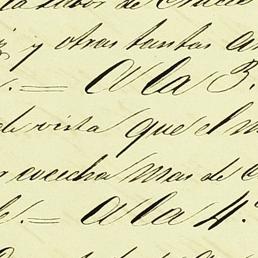 de
y otras tantas
. = A la 3.
de vista que el
cosecha mas de
. = A la 4.